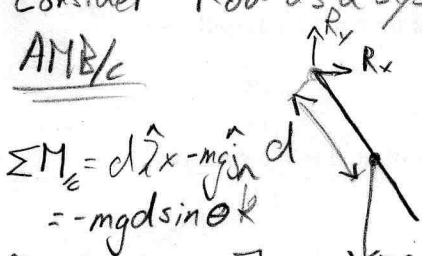 Consider Rod as a sys
Ry
AMB/c
Rx
ΣM/c = dλ̂ x -mgĵ
d
= -mgd sin θ k̂